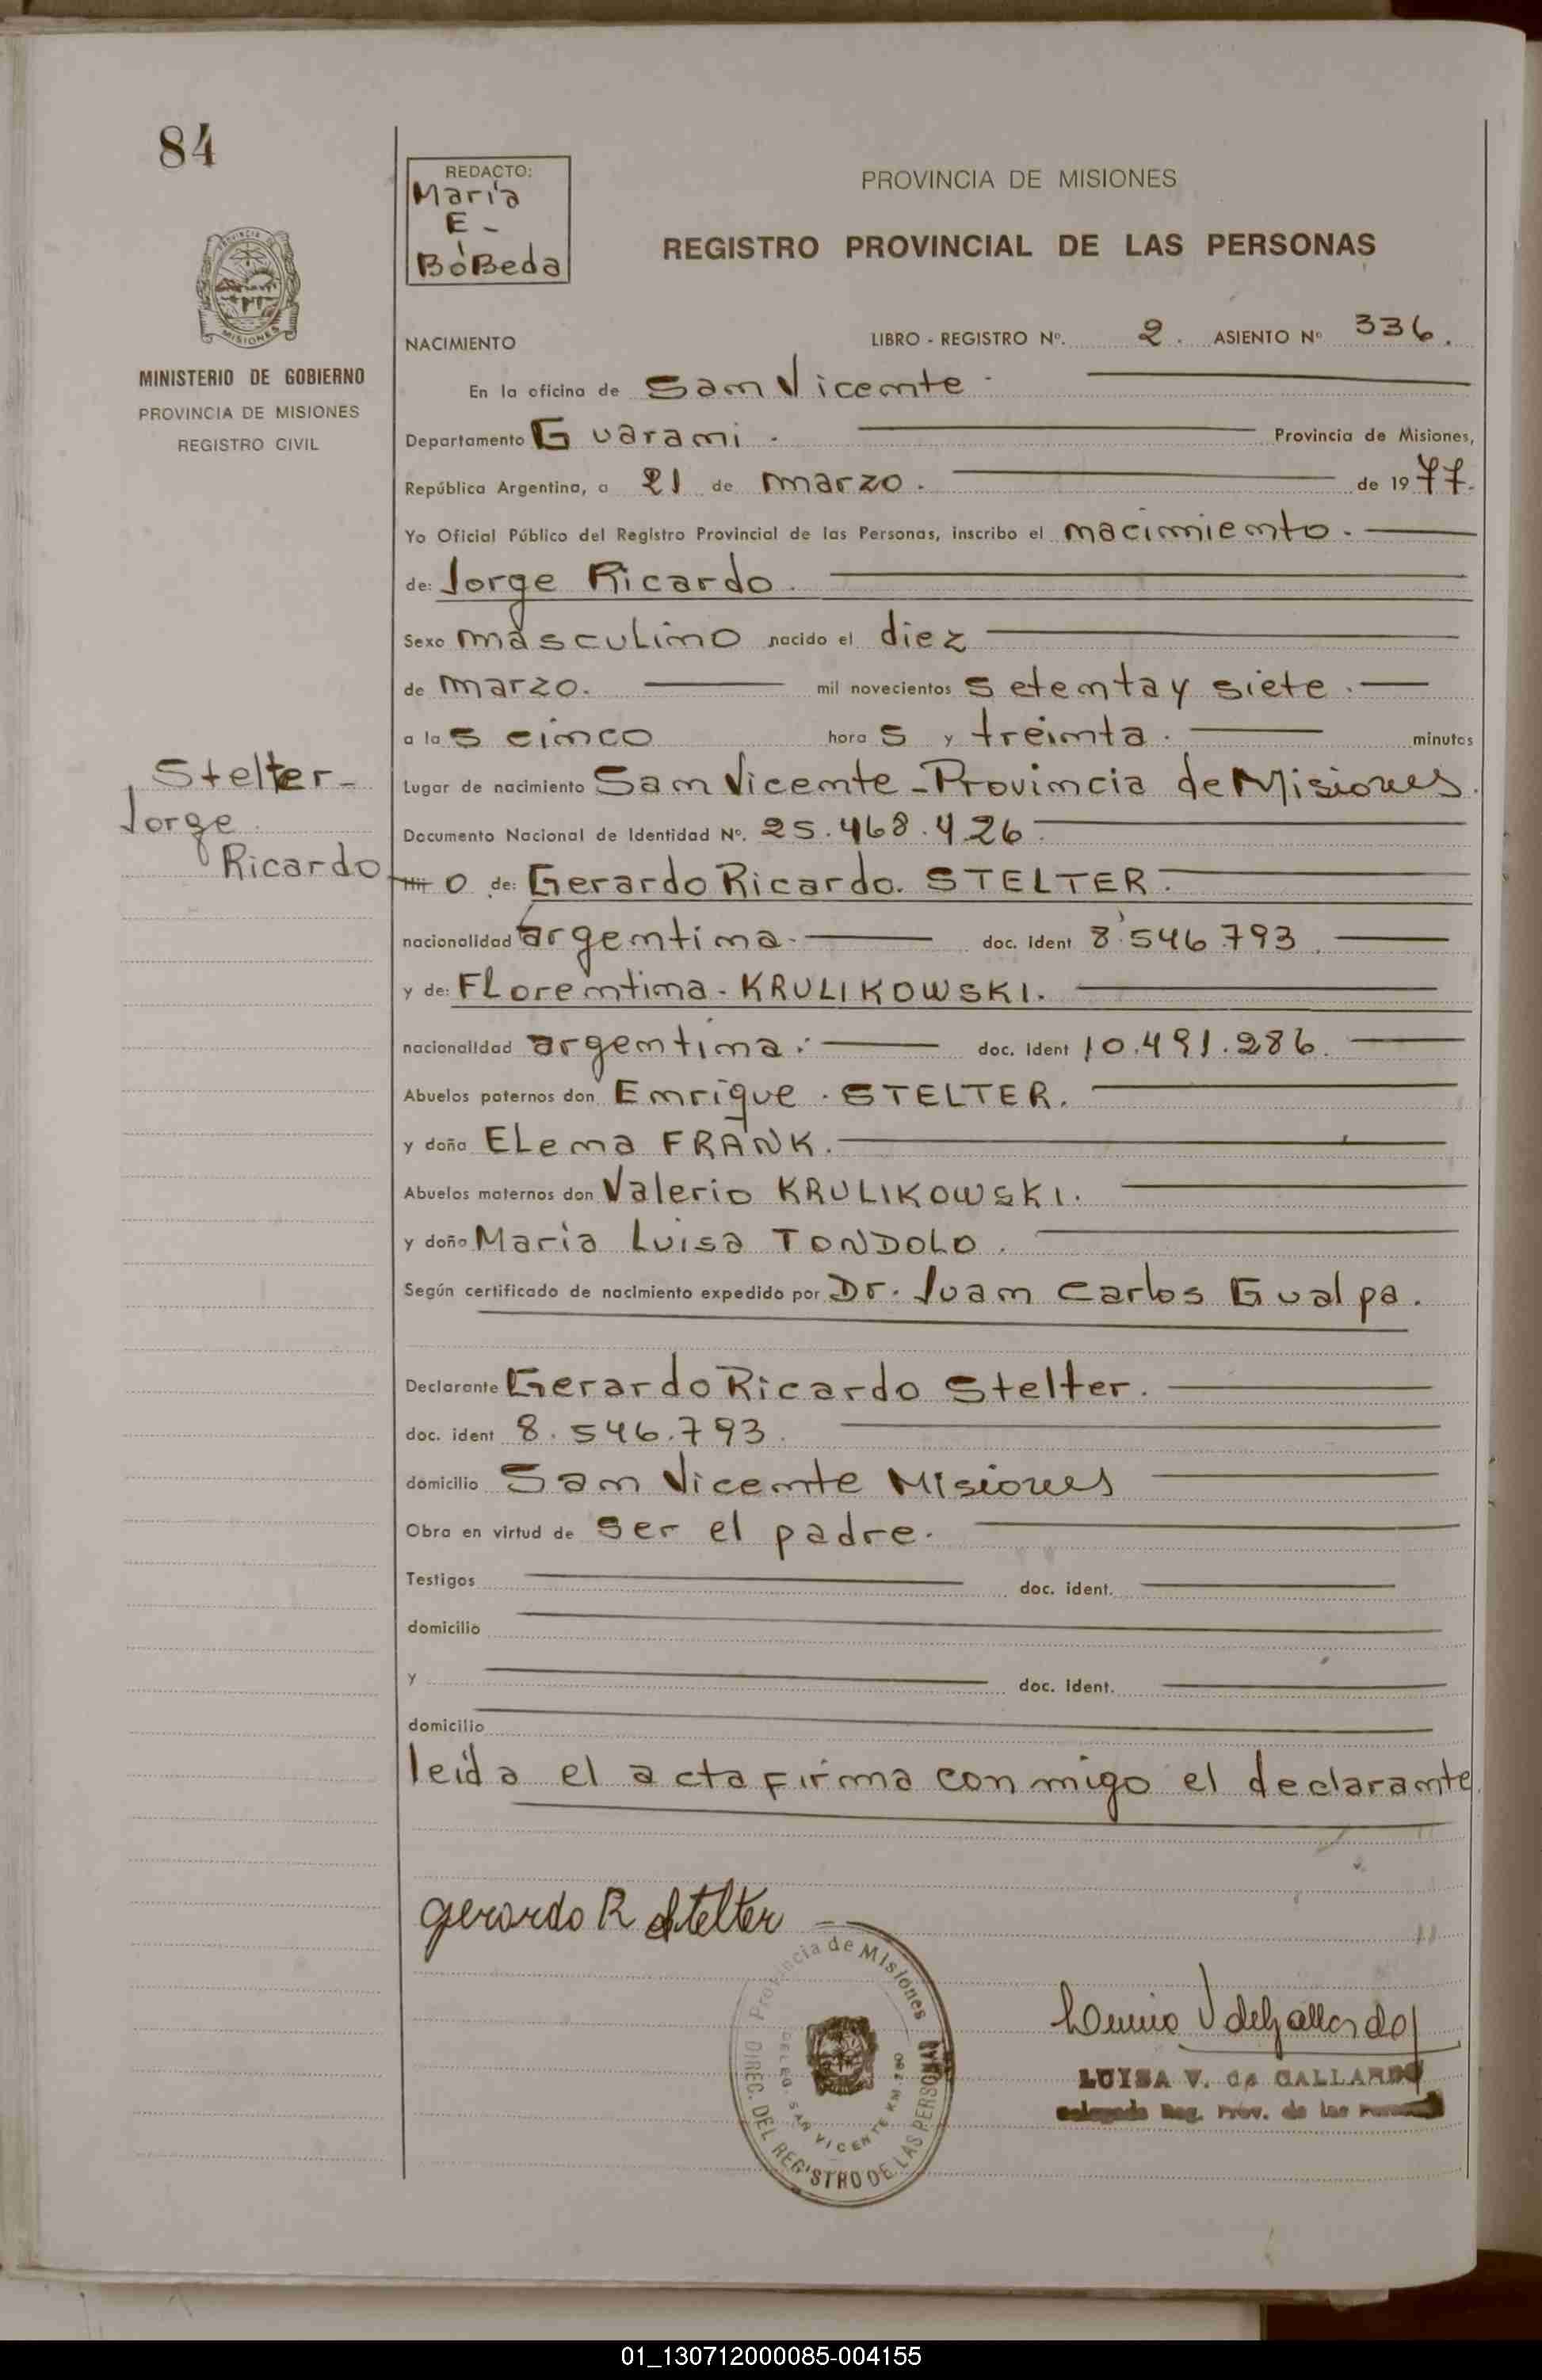 84
REDACTO:
María
E -
BóBeda
PROVINCIA DE MISIONES
REGISTRO PROVINCIAL DE LAS PERSONAS
PROVINCIA DE
MISIONES
MINISTERIO DE GOBIERNO
PROVINCIA DE MISIONES
REGISTRO CIVIL
NACIMIENTO
LIBRO - REGISTRO Nº. 2. ASIENTO Nº 336.
En la oficina de San Vicente -
Departamento Guarani. Provincia de Misiones,
República Argentina, a 21 de marzo. de 1977.
Yo Oficial Público del Registro Provincial de las Personas, inscribo el nacimiento.
de: Jorge Ricardo.
Sexo masculino nacido el diez
de marzo. mil novecientos setenta y siete.
a las cinco horas y treinta. minutos
Stelter -
Jorge
Ricardo
Lugar de nacimiento San Vicente - Provincia de Misiones.
Documento Nacional de Identidad Nº. 25.468.426.
Hijo de: Gerardo Ricardo. STELTER.
nacionalidad argentina. doc. ident 8.546.793.
y de: Florentina - KRULIKOWSKI.
nacionalidad argentina. doc. ident 10.491.286.
Abuelos paternos don Enrique. STELTER.
y doña Elena FRANK.
Abuelos maternos don Valerio KRULIKOWSKI.
y doña Maria Luisa TONDOLO.
Según certificado de nacimiento expedido por Dr. Juan Carlos Gualpa.
Declarante Gerardo Ricardo Stelter.
doc. ident 8.546.793.
domicilio San Vicente Misiones
Obra en virtud de ser el padre.
Testigos doc. ident.
domicilio
y doc. ident.
domicilio
leída el acta firma conmigo el declarante.
Gerardo R Stelter
Provincia de Misiones
DIREC. DEL REGISTRO DE LAS PERSONAS
DELEG. SAN VICENTE KM 180
Luisa V de Gallardo
LUISA V. de GALLARDO
Delegada Reg. Prov. de las Personas
01_130712000085-004155